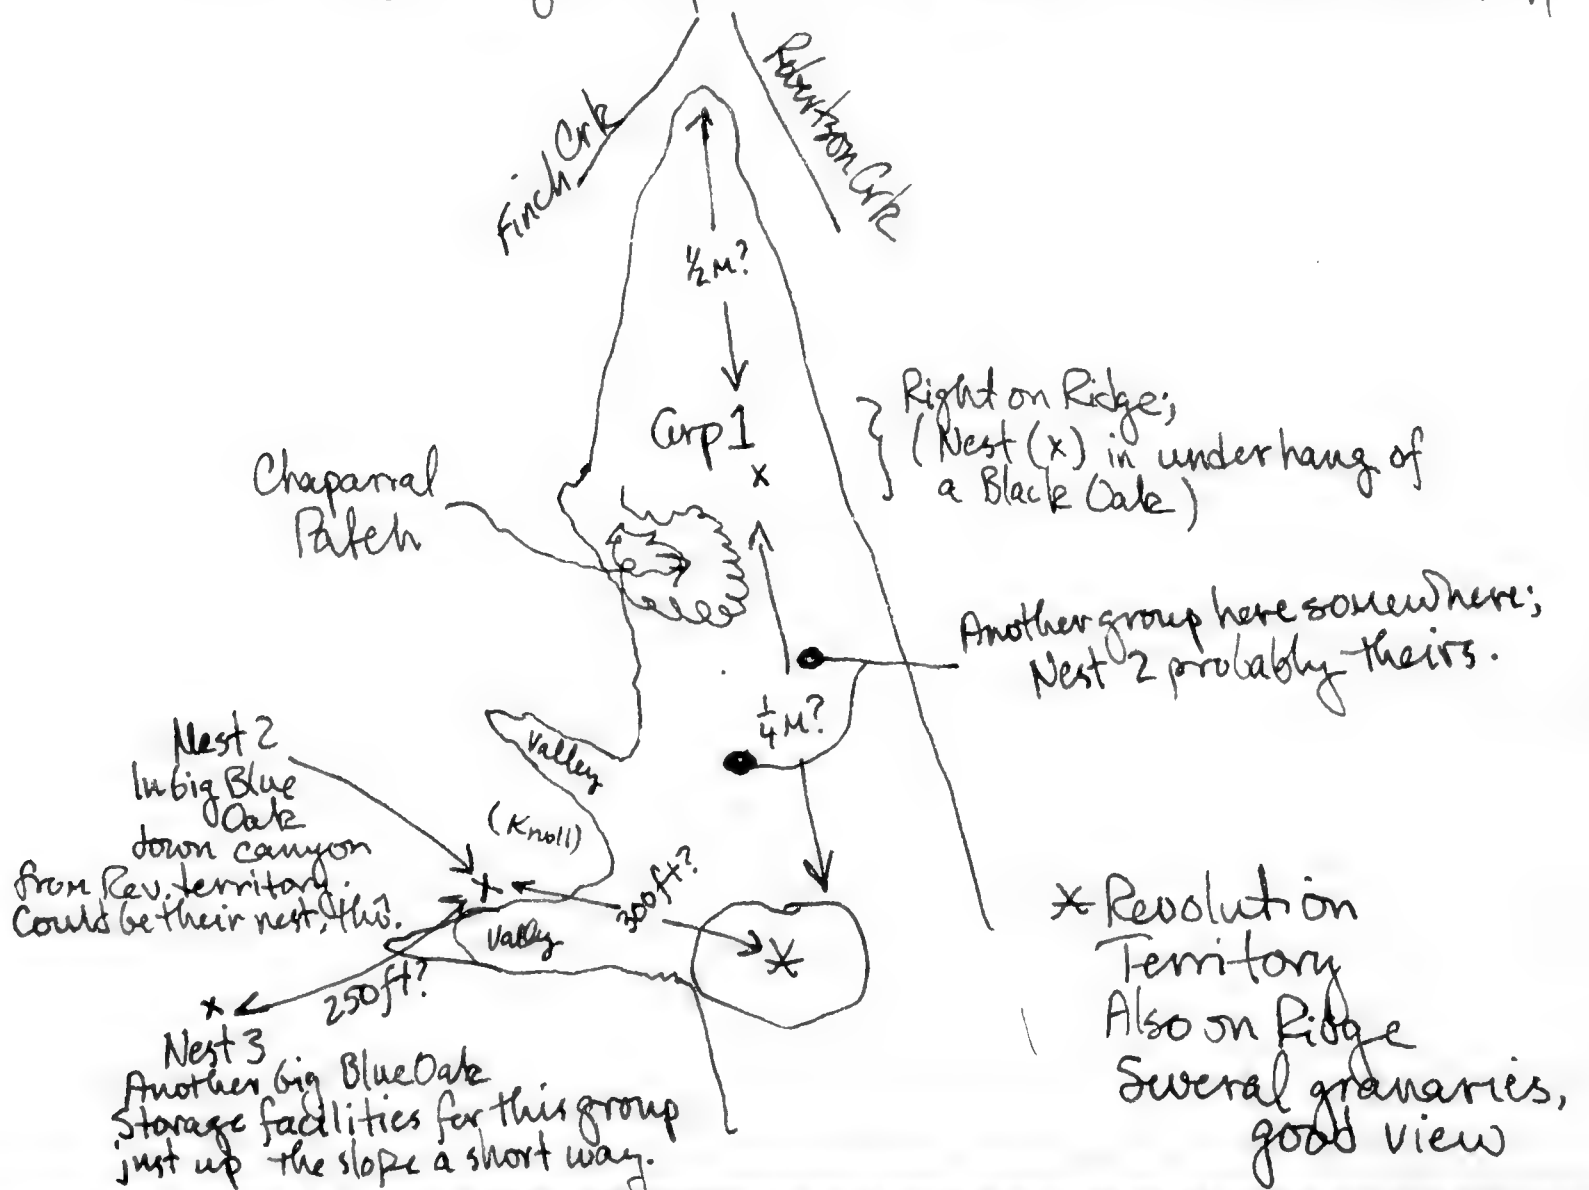 Finch Crk
Robertson Crk
½ M?
Grp 1
x
Right on Ridge;
(Nest (x) in underhang of
a Black Oak)
Chaparral
Patch
Another group here somewhere;
Nest 2 probably theirs.
¼ M?
Valley
(Knoll)
Nest 2
In big Blue
Oak
down canyon
from Rev. territory.
Could be their nest, tho.
x
300ft?
Valley
250ft?
x
Nest 3
Another big Blue Oak
Storage facilities for this group
just up the slope a short way.
* Revolution
Territory
Also on Ridge
Several granaries,
good view